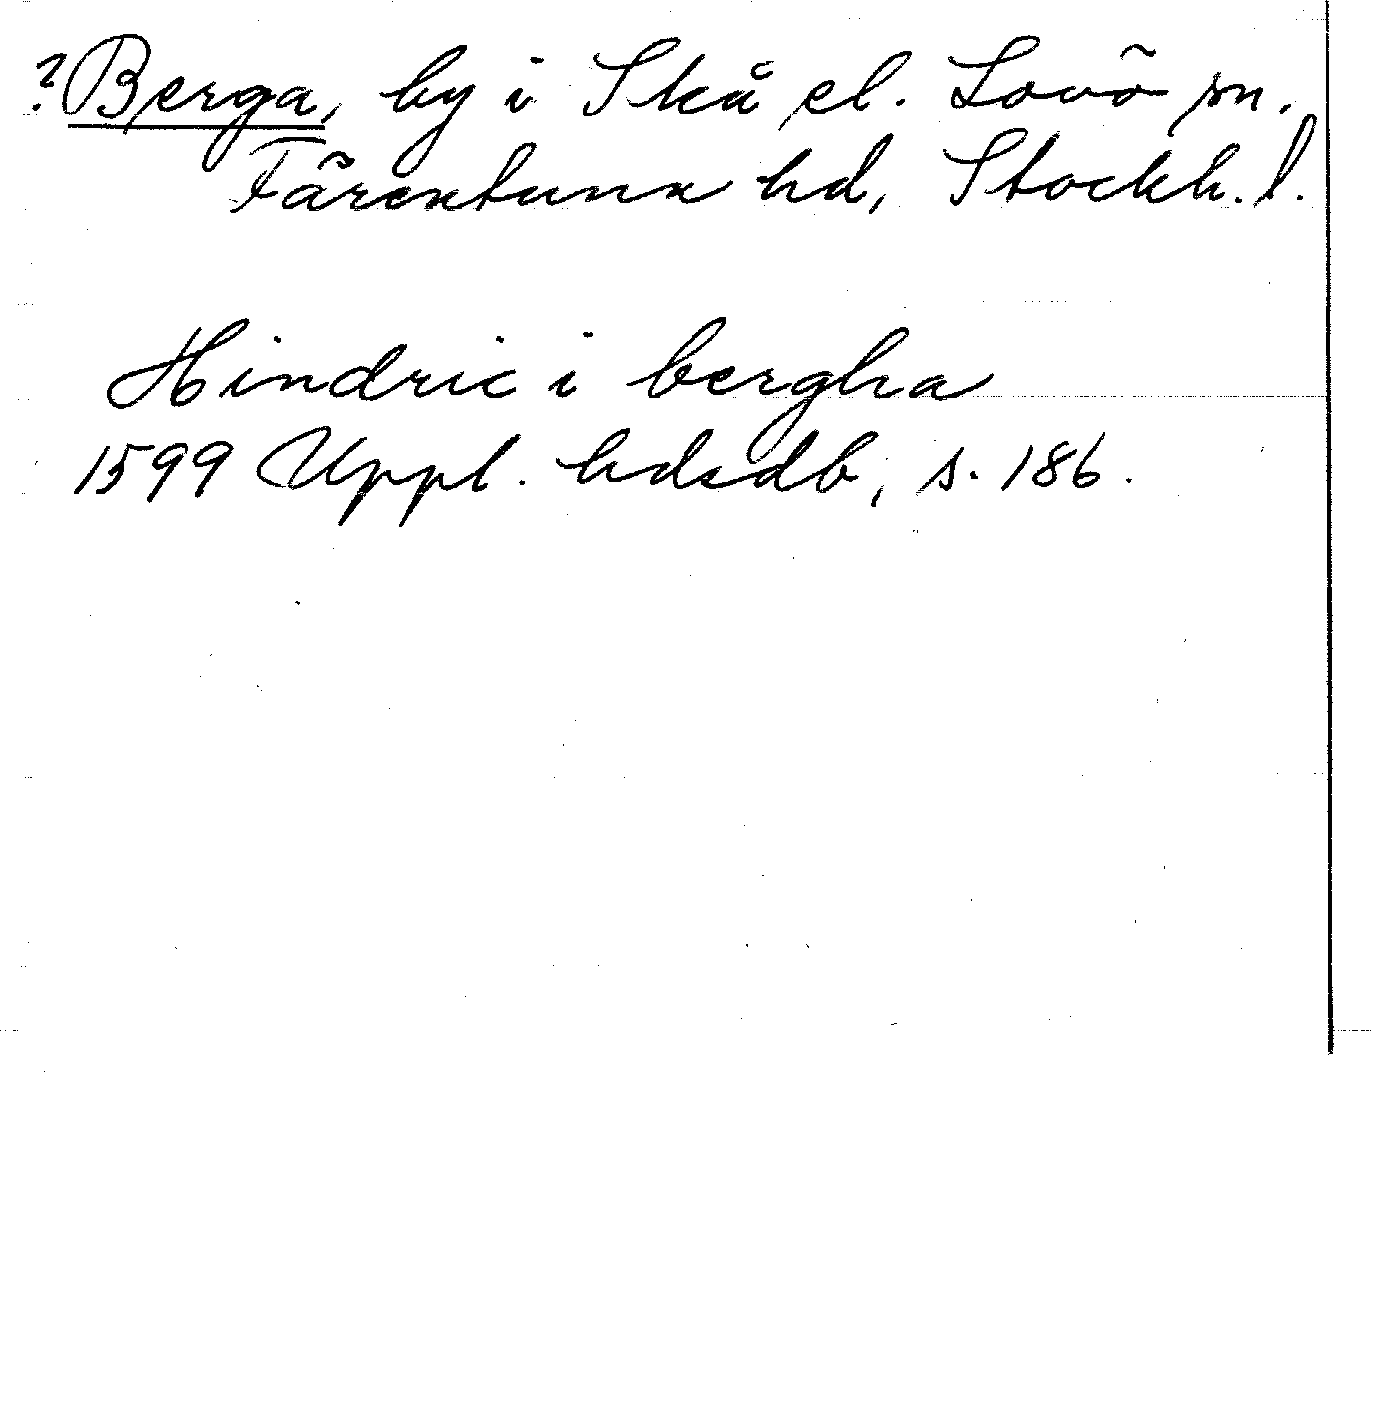 ?Berga, by i Skå el. Lovö sn.
Färentuna hd, Stockh. l.
Hindric i bergha
1599 Uppl. hdsdb, s. 186.